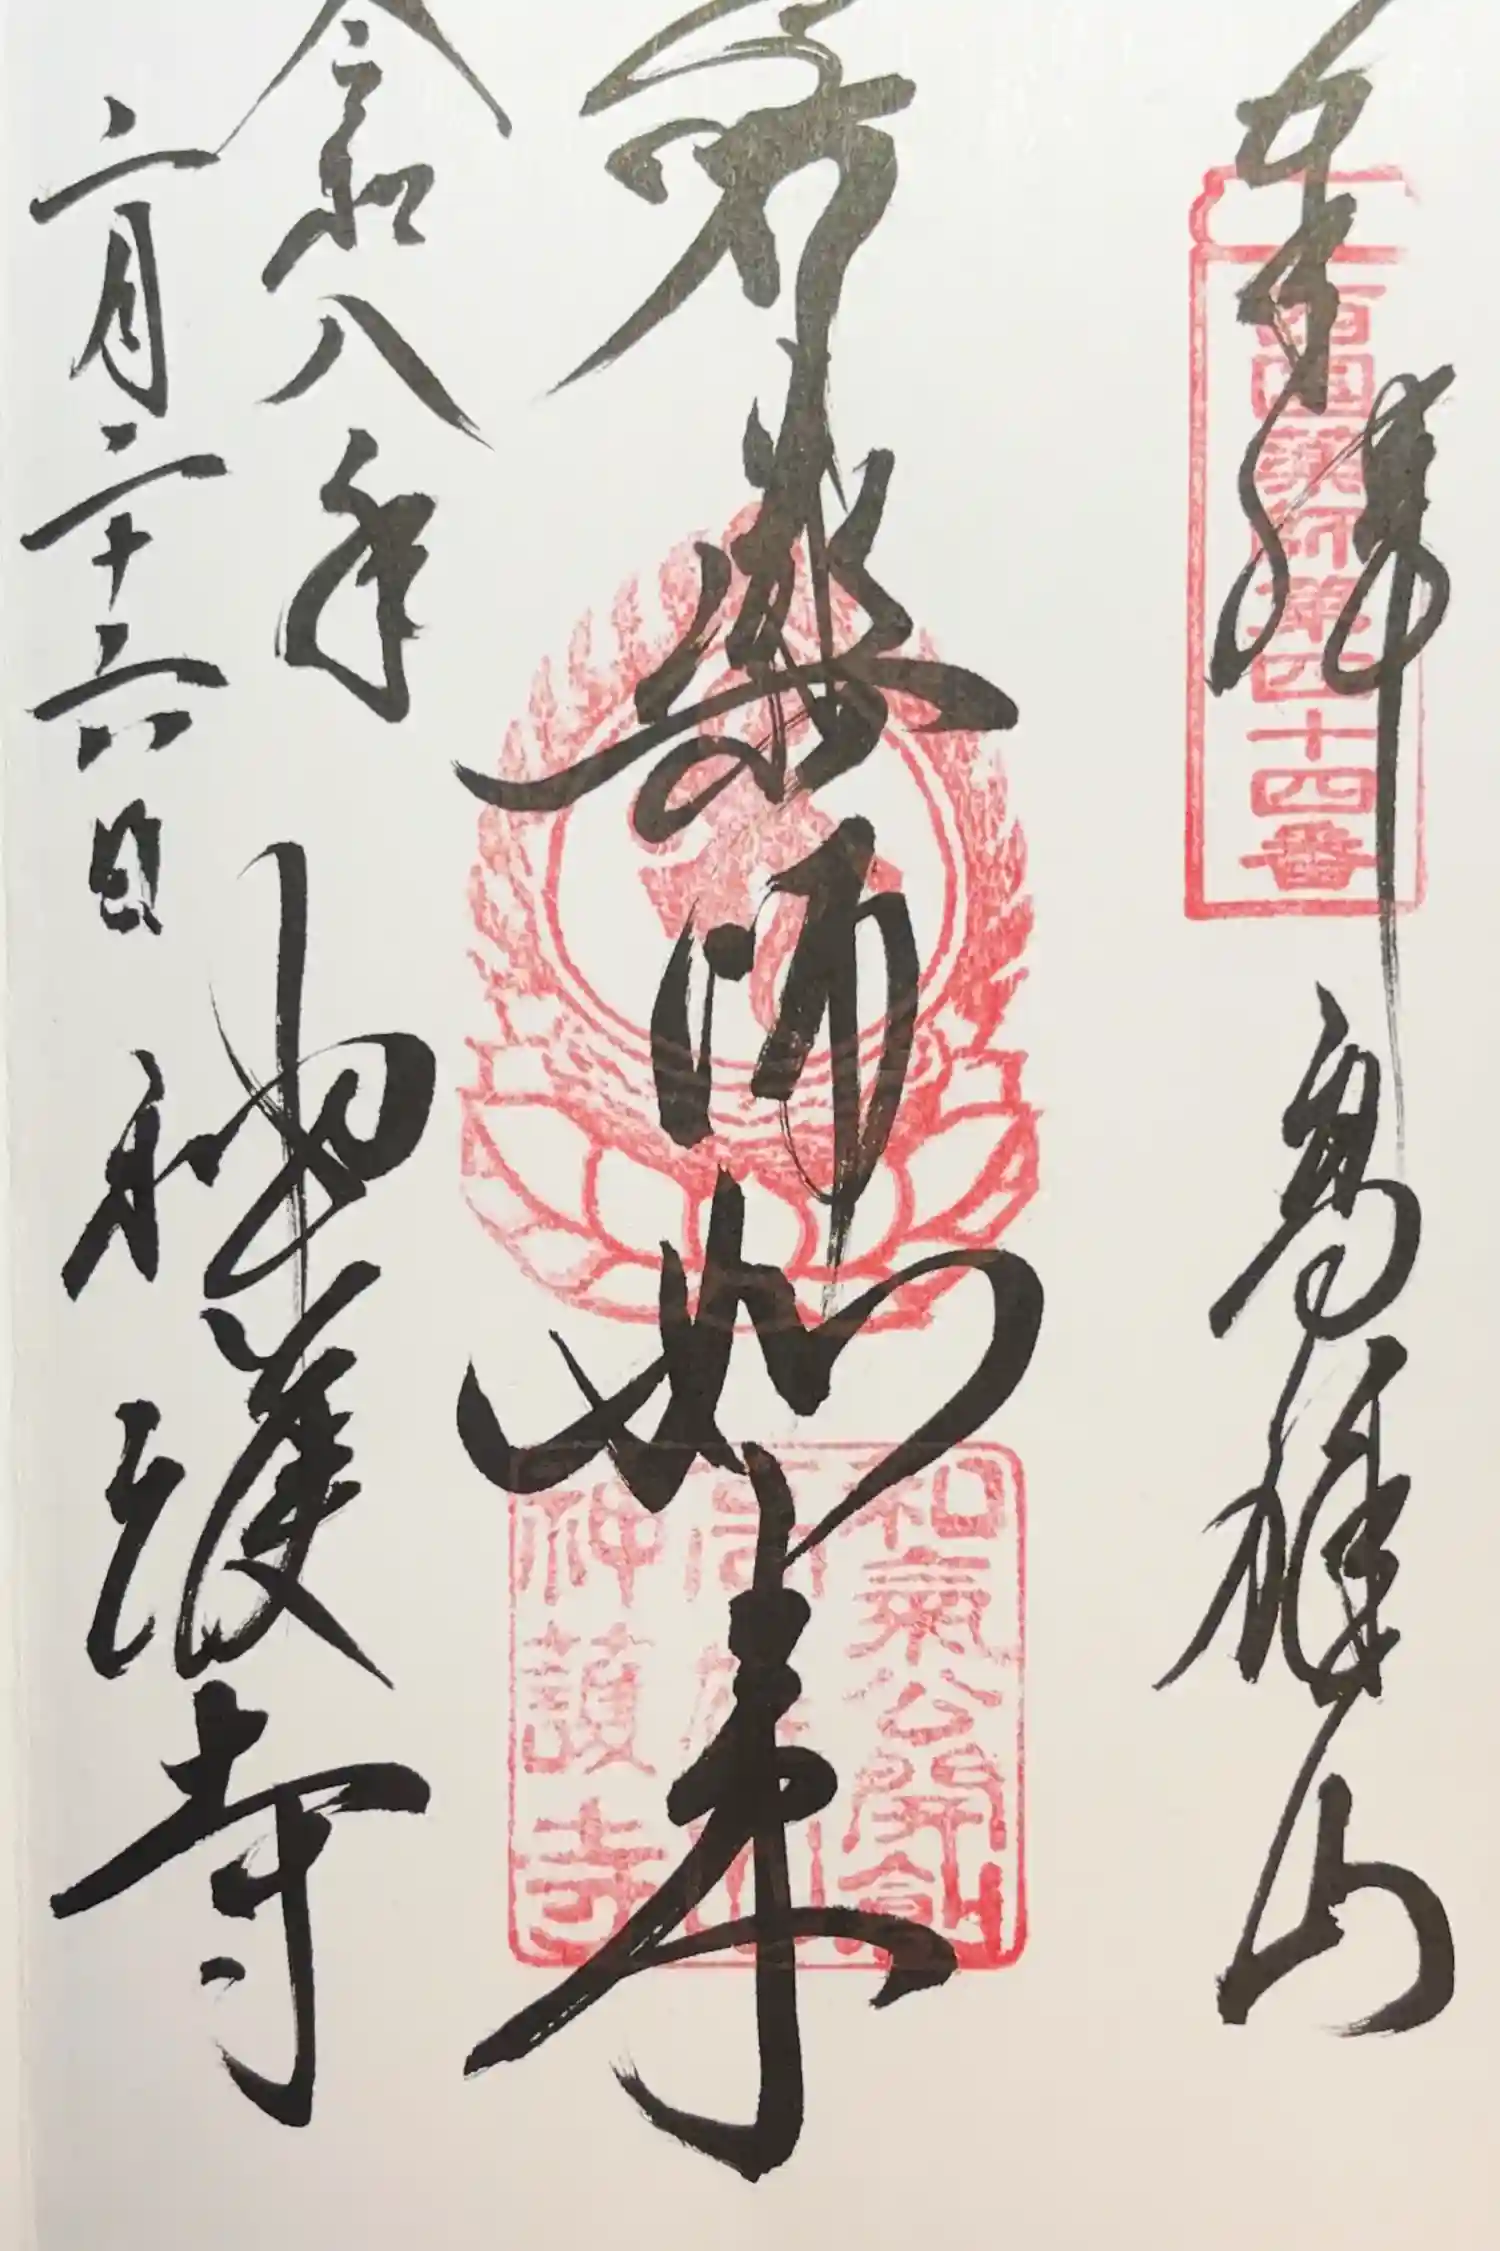 奉拝 高雄山
西国薬師第四十四番
薬師如来
和氣公開創
高雄山
神護寺
令和八年
二月二十六日
神護寺